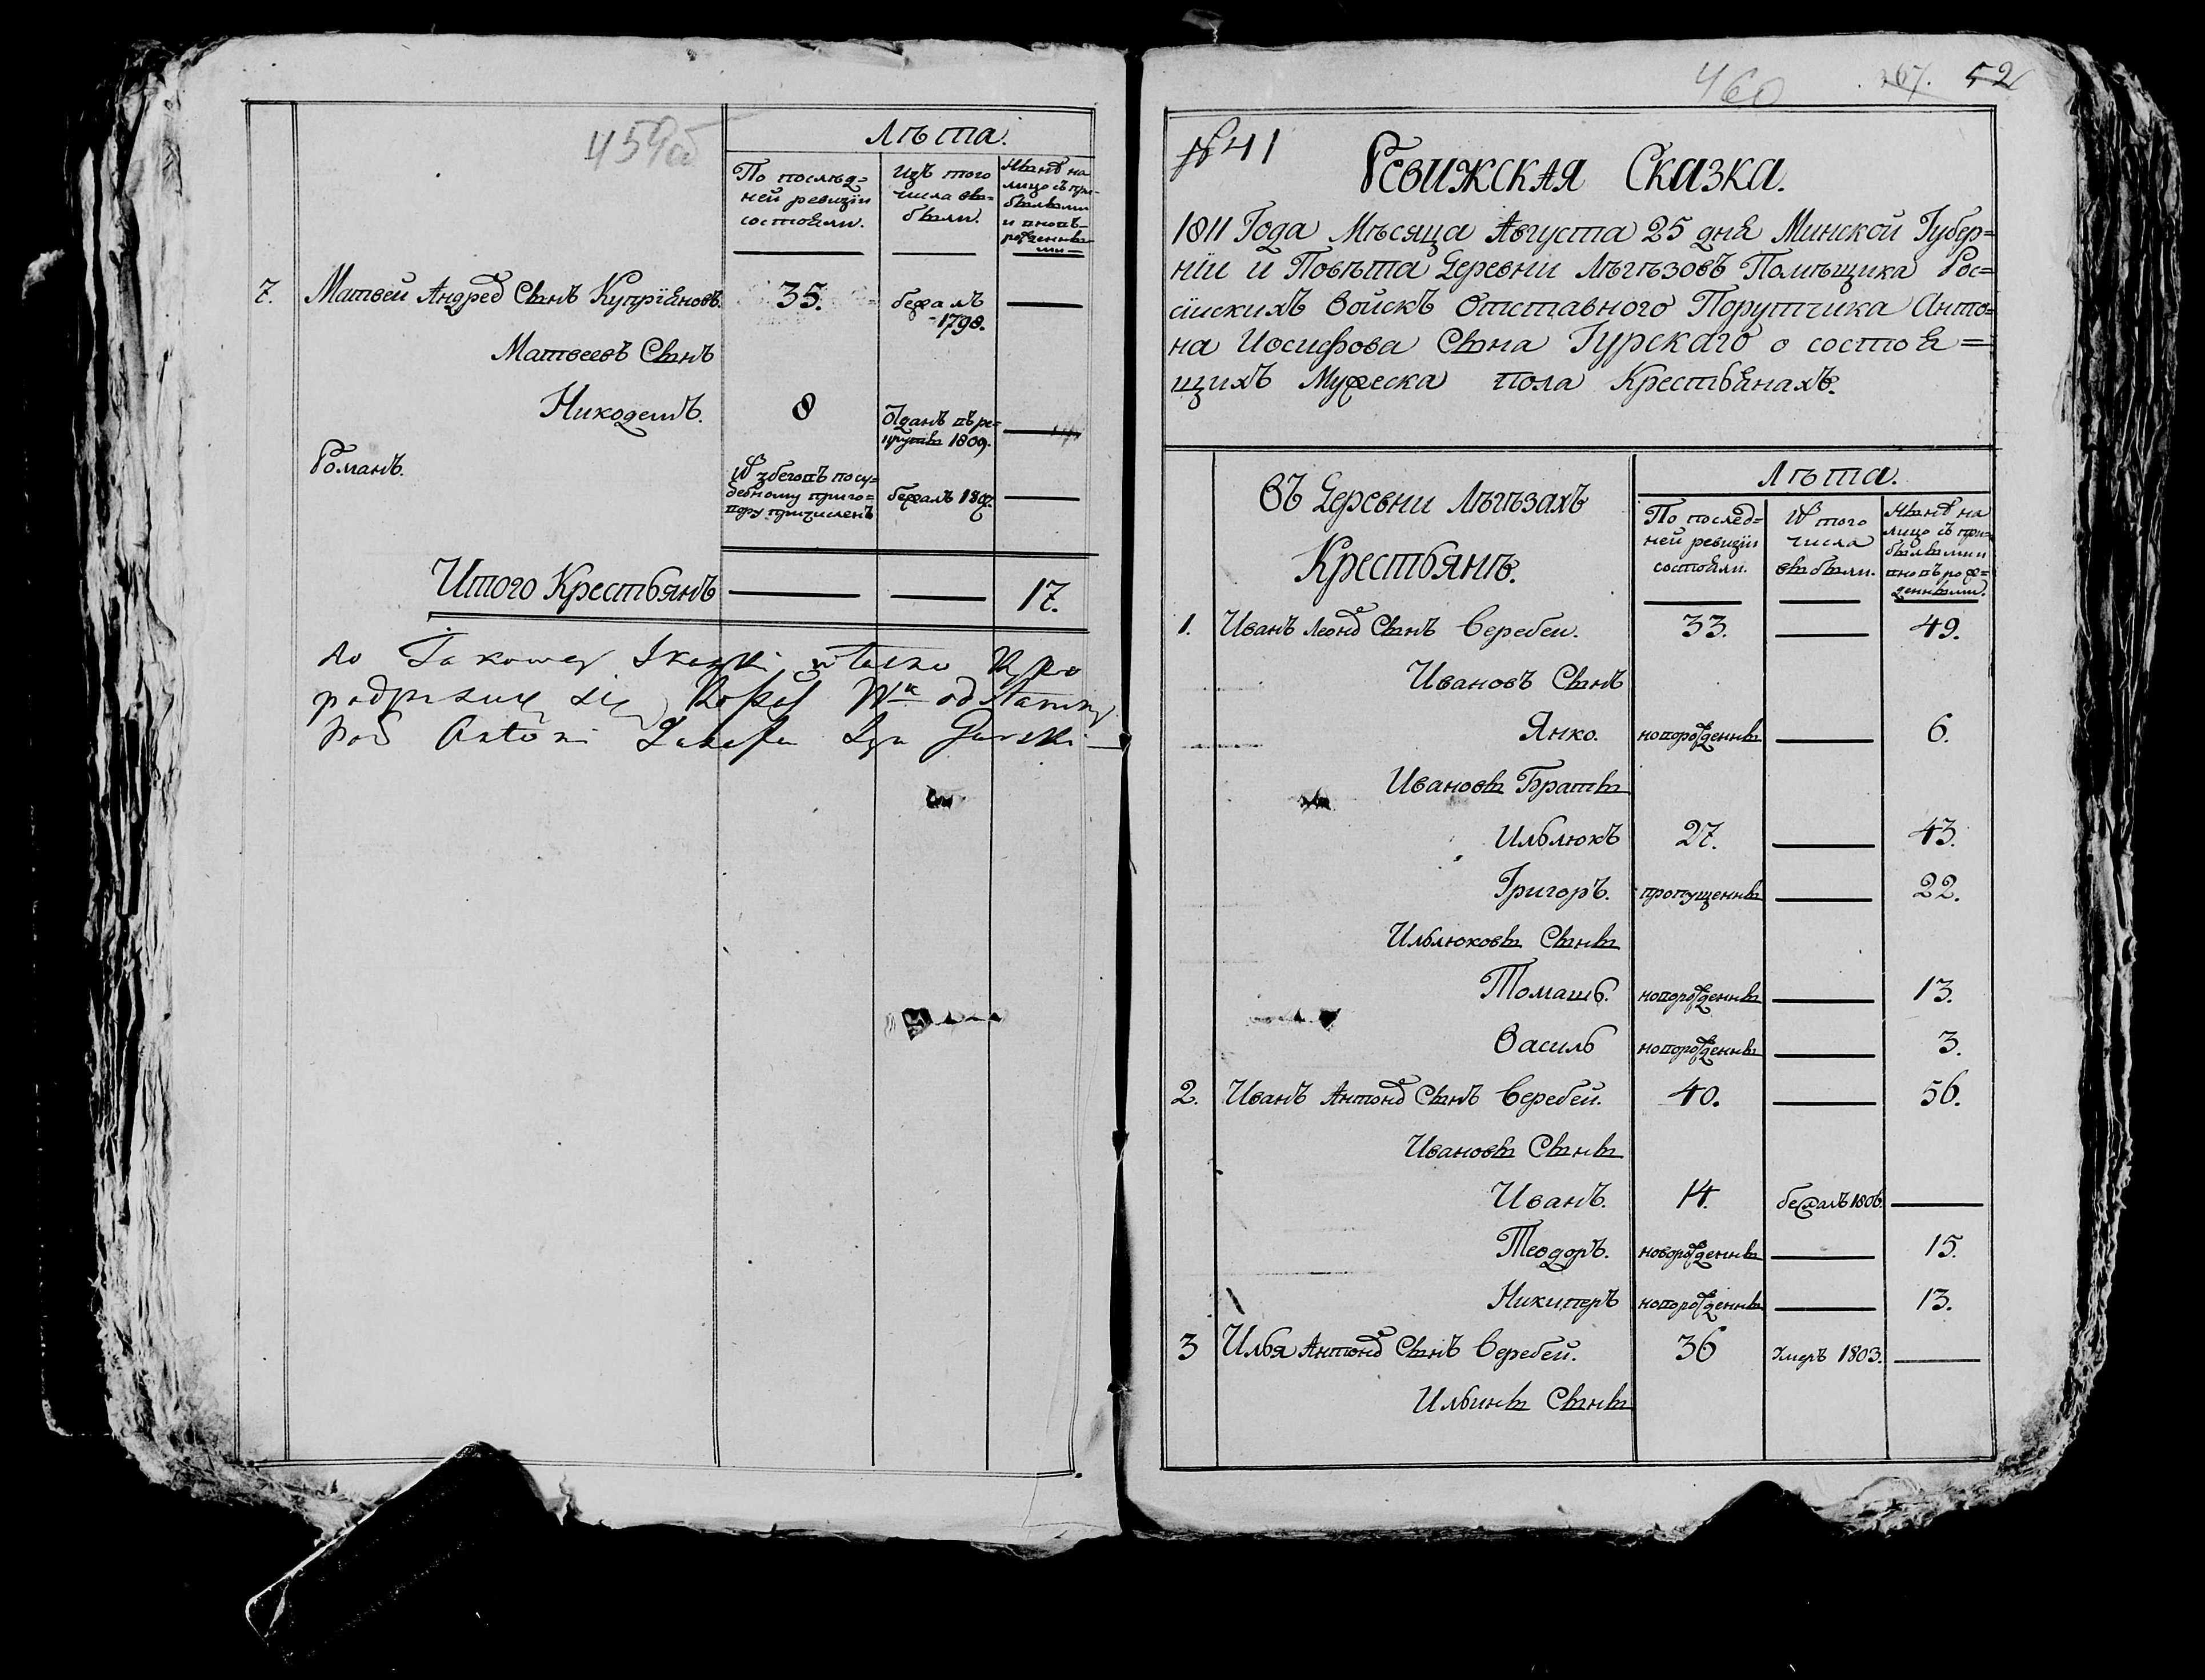 459об
Лѣта.
По послѣд=
ней ревизiи
состояли.
Изъ того
числа вы=
были.
Нынѣ на
лицо съ при-
былыми
и вновь-
рожденны-
ми
7. Матвей Андреев Сынъ Купрiяновъ. 35. бежалъ
1798.
Матвеевъ Сынъ
Никодемъ. 8 Отданъ въ ре=
круты 1809.
Романъ. Из бегопъ по су=
дебному приго=
вору причисленъ бежалъ 1807.
Итого Крестьянъ 17.
do Takowey Skazki
podpisuię się
Antoni Syn Gurski
460 267. 52
№ 41
Ревижская Сказка.
1811 Года Мѣсяца Августа 25 дня Минской Губер=
нiи и Повѣта Деревни Лѣгѣзовъ Помѣщика Рос=
сiискихъ Войскъ Отставного Порутчика Анто=
на Иосифова Сына Гурскаго о состоя=
щихъ Мужеска пола Крестьянахъ.
Въ Деревни Лѣгѣзахъ
Крестьянъ.
Лѣта.
По послед=
ней ревизiи
состояли.
Из того
числа
выбыли.
Нынѣ на
лицо съ при=
былыми и
вновь рож=
денными.
1. Иванъ Леонов Сынъ Веребей. 33. 49.
Ивановъ Сынъ
Янко. новорожденны 6.
Ивановы Браты
Ильлюкъ 27. 43.
Григоръ. пропущенны 22.
Ильлюковы Сыны
Томашь. новорожденны 13.
Василь новорожденны 3.
2. Иванъ Антонов Сынъ Веребей. 40. 56.
Ивановы Сыны
Иванъ. 14. бежалъ 1806.
Теодоръ. новорожденны 15.
Никиперъ новорожденны 13.
3 Илья Антонов Сынъ Веребей. 36 Умеръ 1803.
Ильины Сыны